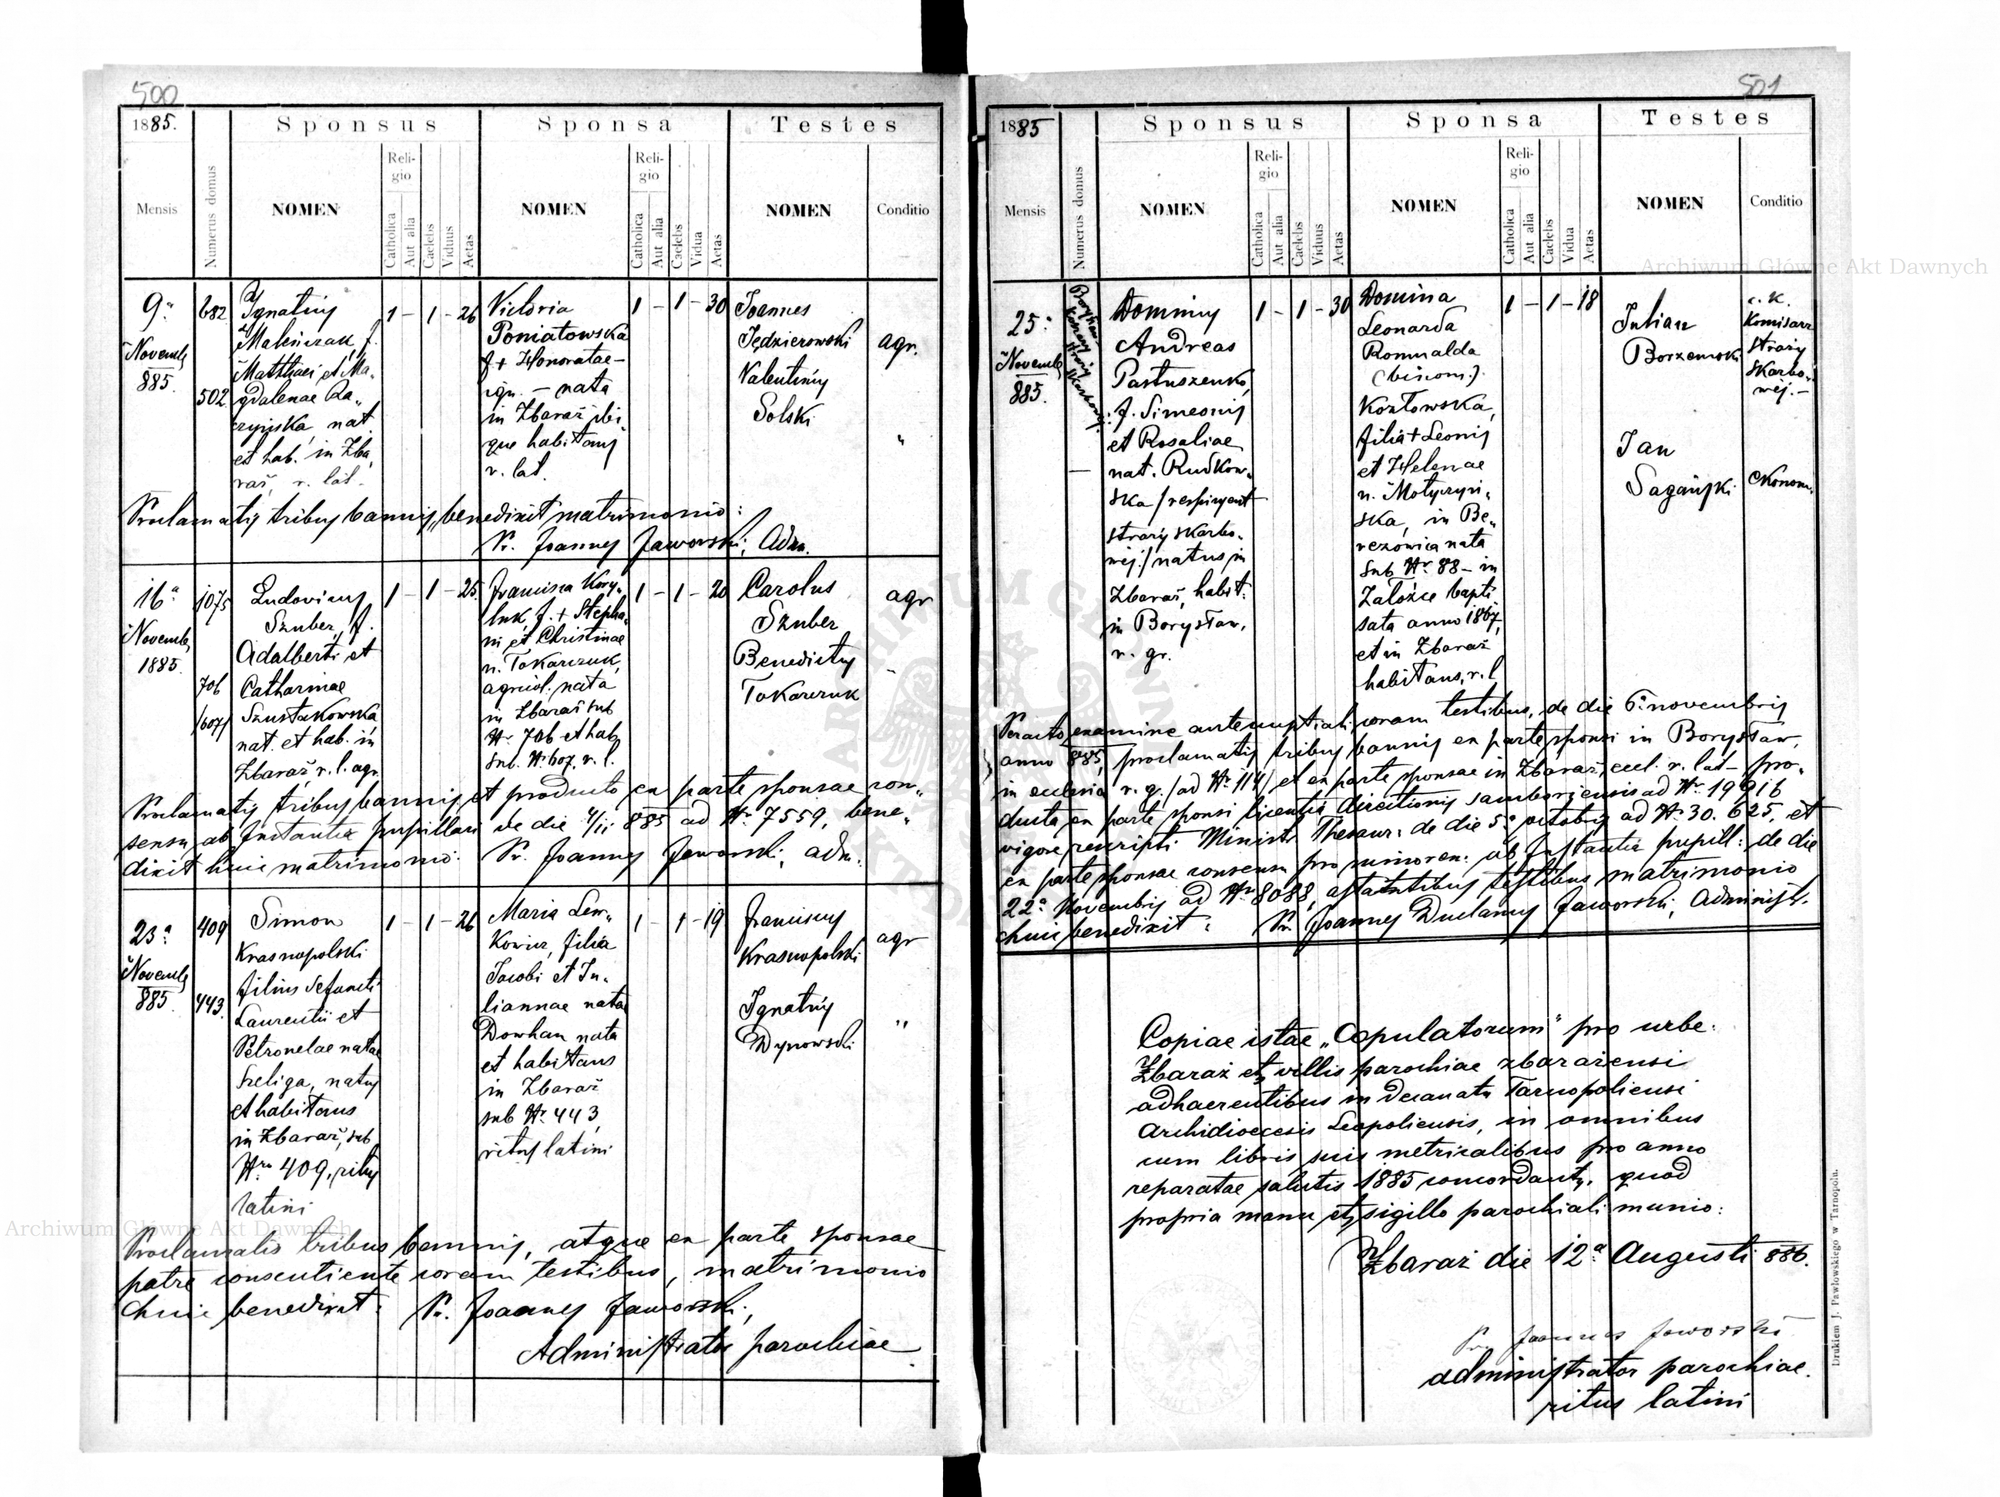 500
1885.
Sponsus
Sponsa
Testes
Mensis
Numerus domus
NOMEN
Religio
Catholica
Aut alia
Caelebs
Viduus
Aetas
NOMEN
Religio
Catholica
Aut alia
Caelebs
Vidua
Aetas
NOMEN
Conditio
9a
Novemb
885.
682
502
Ignatius
Maleńczak f.
Matthaei et Ma-
gdalenae
nat.
et hab. in Zba-
raż, r. lat.
1 - 1 - 26
Victoria
Poniatowska
f. + Honoratae
ign. - nata
in Zbaraż ibi-
que habitans
r. lat.
1 - 1 - 30
Joannes
Jędzierowski
Valentinus
Solski
agr.
"
Proclamatis tribus bannis, benedixit matrimonio:
Pr. Joannes Jaworski, Adm.
16a
Novemb
1885.
1075
706
/607/
Ludovicus
Szuber, f.
Adalberti et
Catharinae
Szustakowska
nat. et hab. in
Zbaraż, r. l. agr.
1 - 1 - 25
Francisca Kory-
luk, f. + Stepha-
ni et Christinae
n. Tokarczuk,
agricol. nata
in Zbaraż sub
Nr 706 et hab.
sub. Nr 607, r. l.
1 - 1 - 20
Carolus
Szuber
Benedictus
Tokarczuk
agr
Proclamatis tribus bannis, et producto ex parte sponsae con-
sensu ab Instantia pupillari de die 4/11 885 ad Nr 7559, bene-
dixit huic matrimonio: Pr. Joannes Jaworski, adm.
23a
Novemb
885
409
443.
Simon
Krasnopolski
filius defuncti
Laurentii et
Petronelae natae
Szeliga, natus
et habitans
in Zbaraż, sub
Nro 409, ritus
latini
1 - 1 - 26
Maria Lew-
kowicz, filia
Jacobi et Ju-
liannae natae
Dowhan nata
et habitans
in Zbaraż
sub Nr 443,
ritus latini
1 - 1 - 19
Franciscus
Krasnopolski
Ignatius
Dynowski
agr
"
Proclamatis tribus bannis, atque ex parte sponsae
patre consentiente coram testibus, matrimonio
huic benedixit: Pr. Joannes Jaworski,
Administrator parochiae
501
1885
Sponsus
Sponsa
Testes
Mensis
Numerus domus
NOMEN
Religio
Catholica
Aut alia
Caelebs
Viduus
Aetas
NOMEN
Religio
Catholica
Aut alia
Caelebs
Vidua
Aetas
NOMEN
Conditio
25a
Novemb
885.
Dominus
Andreas
Pastuszenko,
f. Simeonis
et Rosaliae
nat. Rudkow-
ska /respicyent
straży skarbo-
wej/ natus in
Zbaraż, habit:
in Borysław,
r. gr.
1 - 1 - 30
Domina
Leonarda
Romualda
(binom.)
Kozłowska,
filia + Leonis
et Helenae
n. Motyczyń-
ska, in Be-
rezowica nata
sub Nr 88 - in
Załoźce bapti-
sata anno 1867,
et in Zbaraż
habitans, r. l
1 - 1 - 18
Julian
Borzemski
Jan
Sagański
c. k.
Komisarz
straży
skarbo-
wej. -
ekonom.
Peracto examine antenuptiali coram testibus, de die 6a novembris
anno 885, proclamatis tribus bannis ex parte sponsi in Borysław,
in ecclesia r. g. /ad Nr 114/ et ex parte sponsae in Zbaraż, eccl. r. lat - pro-
ducta ex parte sponsi licentia directionis samboriensis ad Nr 19916
vigore rescripti Ministr Thesaur: de die 5a octobris ad Nr 30.625, et
ex parte sponsae consensu pro minoren. ab Instantia pupill: de die
22a Novembris ad Nr 8088, astantibus testibus matrimonio
huic benedixit: Pr. Joannes Duclanus Jaworski, Administ.
Copiae istae „Copulatorum" pro urbe
Zbaraż et villis parochiae zbarażensi
adhaerentibus in decanatu Tarnopoliensi
Archidioecesis Leopoliensis, in omnibus
cum libris suis metricalibus pro anno
reparatae salutis 1885 concordant, quod
propria manu et sigillo parochiali munio:
Zbaraż die 12a Augusti 886.
Pr. Joannes Jaworski
administrator parochiae
ritus latini
Drukiem J. Pawłowskiego w Tarnopolu.
Archiwum Główne Akt Dawnych
Archiwum Główne Akt Dawnych